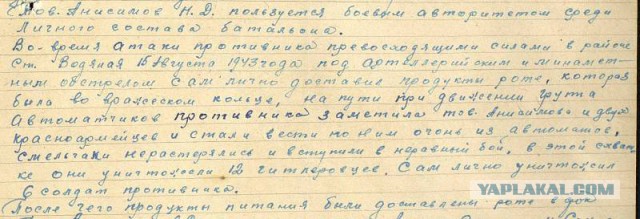 Тов. Анисимов Н.Д. пользуется боевым авторитетом среди
личного состава батальона.
Во-время атаки противника превосходящими силами в районе
ст. Водяная 15 Августа 1943 года под артиллерийским и минамет-
ным обстрелом сам лично доставил продукты роте, которая
была во вражеском кольце, на пути при движении група
автоматчиков противника заметила тов. Анисимова и двух
красноармейцев и стали вести по ним огонь из автоматов,
смельчаки нерастерялись и вступили в неравный бой, в этой схват-
ке они уничтожили 12 гитлеровцев. Сам лично уничтожил
6 солдат противника.
После чего продукты питания были доставлены роте в
YAPLAKAL.COM